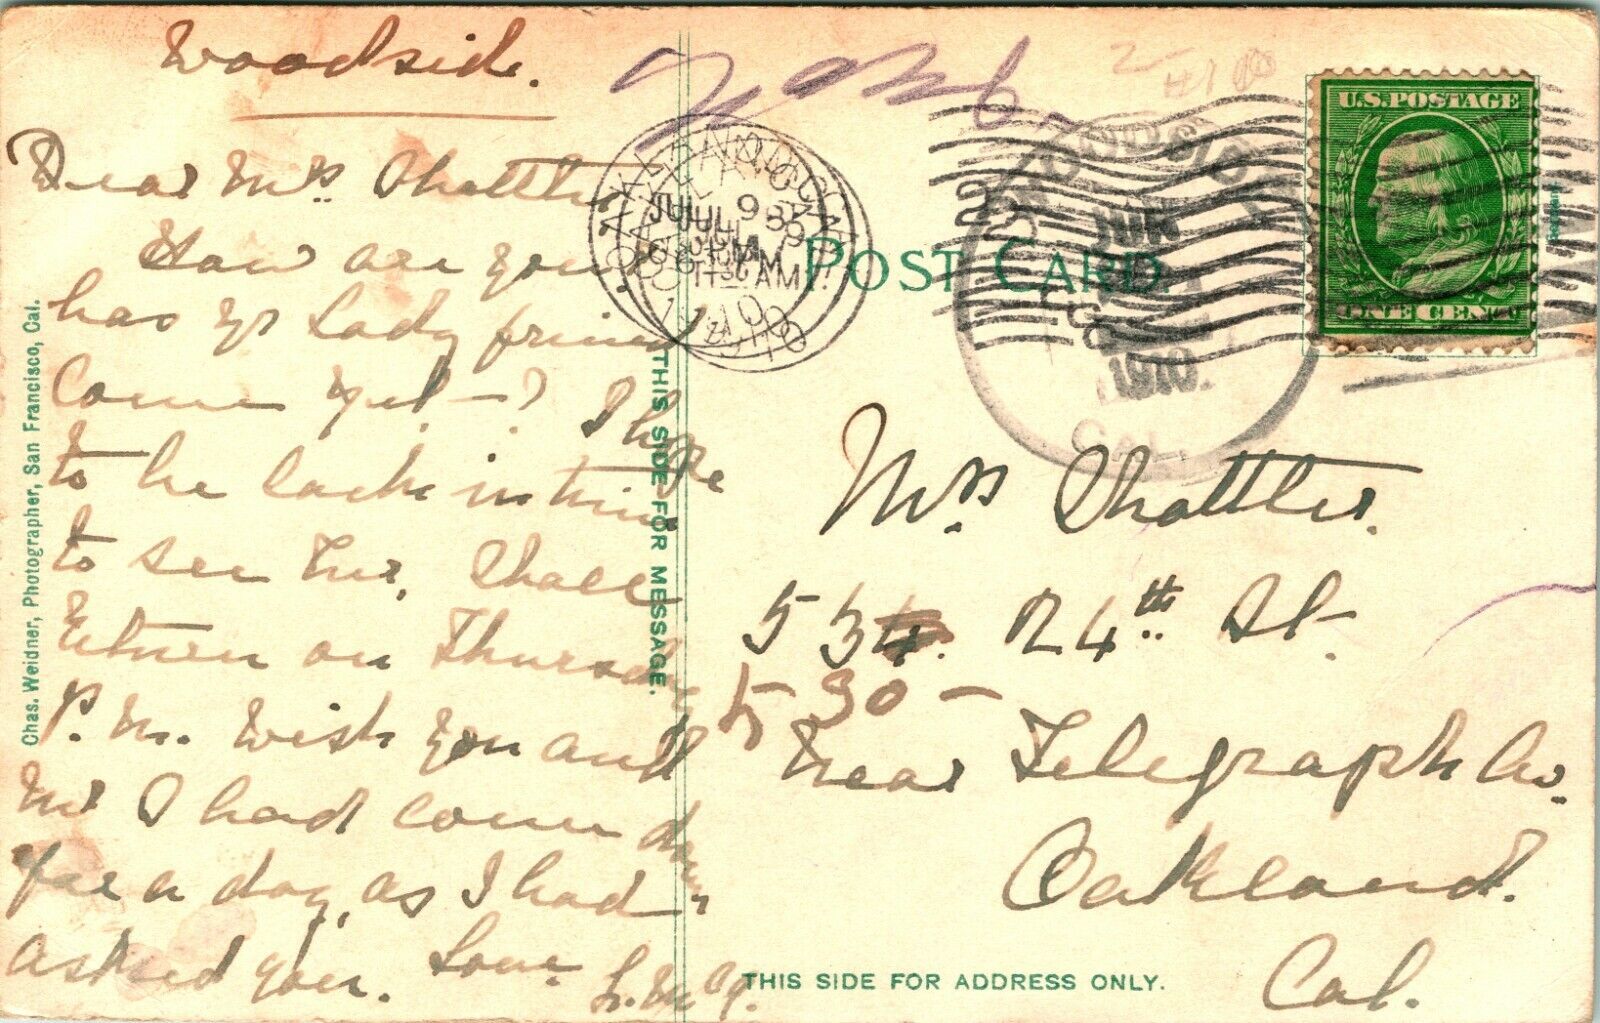 Woodside.
Dear Mrs Shattler
How are you
has yr Lady friend
Come yet-? I hope
to be back in time
to see her, Shall
Return on Thursday
P.M. Wish you and
Mr I had come down
for a day, as I had
asked you. Love L. McC.
Chas. Weidner, Photographer, San Francisco, Cal.
THIS SIDE FOR MESSAGE.
OAKLAND CAL
JUL 9
1910
WOODSIDE
1910
CAL.
POST CARD
U.S. POSTAGE
ONE CENT
Mrs Shattler.
534. 24th St.
530-
near Telegraph Av.
Oakland.
Cal.
THIS SIDE FOR ADDRESS ONLY.